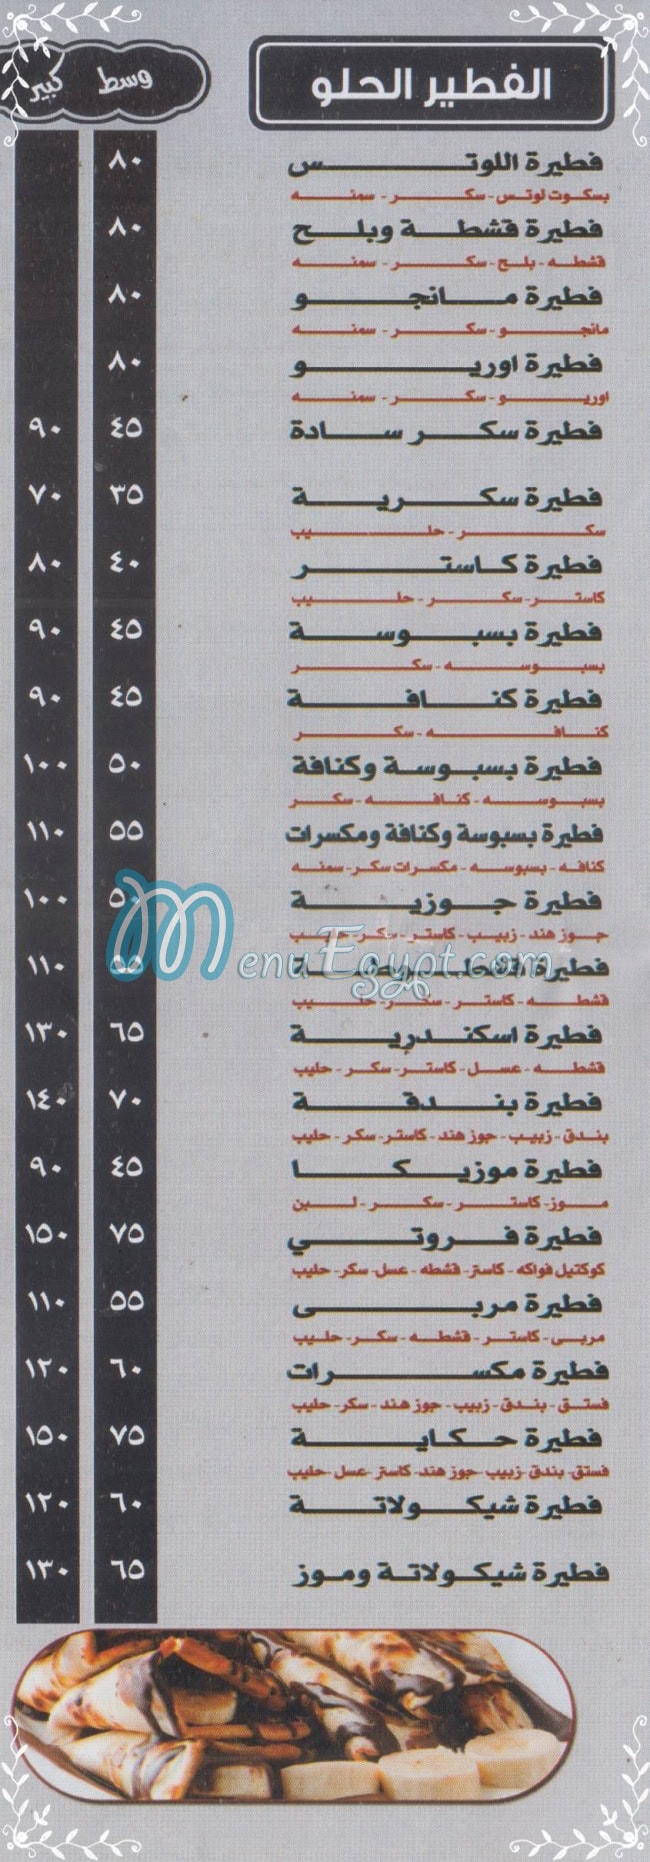 الفطير الحلو وسط كبير
فطيرة اللوتس ٨٠
بسكوت لوتس - سكر - سمنه
فطيرة قشطة وبلح ٨٠
قشطه - بلح - سكر - سمنه
فطيرة مانجو ٨٠
مانجو - سكر - سمنه
فطيرة اوريو ٨٠
اوريو - سكر - سمنه
فطيرة سكر سادة ٤٥ ٩٠
فطيرة سكرية ٣٥ ٧٠
سكر - حليب
فطيرة كاستر ٤٠ ٨٠
كاستر - سكر - حليب
فطيرة بسبوسة ٤٥ ٩٠
بسبوسه - سكر
فطيرة كنافة ٤٥ ٩٠
كنافه - سكر
فطيرة بسبوسة وكنافة ٥٠ ١٠٠
بسبوسه - كنافه - سكر
فطيرة بسبوسة وكنافة ومكسرات ٥٥ ١١٠
كنافه - بسبوسه - مكسرات سكر - سمنه
فطيرة جوزية ٥٠ ١٠٠
جوز هند - زبيب - كاستر - سكر - حليب
فطيرة القشطوطة ٥٥ ١١٠
MenuEgypt.com
قشطه - كاستر - سكر - حليب
فطيرة اسكندرية ٦٥ ١٣٠
قشطه - عسل - كاستر - سكر - حليب
فطيرة بندقة ٧٠ ١٤٠
بندق - زبيب - جوز هند - كاستر - سكر - حليب
فطيرة موزيكا ٤٥ ٩٠
موز - كاستر - سكر - لبن
فطيرة فروتي ٧٥ ١٥٠
كوكتيل فواكه - كاستر - قشطه - عسل - سكر - حليب
فطيرة مربى ٥٥ ١١٠
مربى - كاستر - قشطه - سكر - حليب
فطيرة مكسرات ٦٠ ١٢٠
فستق - بندق - زبيب - جوز هند - سكر - حليب
فطيرة حكاية ٧٥ ١٥٠
فستق - بندق - زبيب - جوز هند - كاستر - عسل - حليب
فطيرة شيكولاتة ٦٠ ١٢٠
فطيرة شيكولاتة وموز ٦٥ ١٣٠